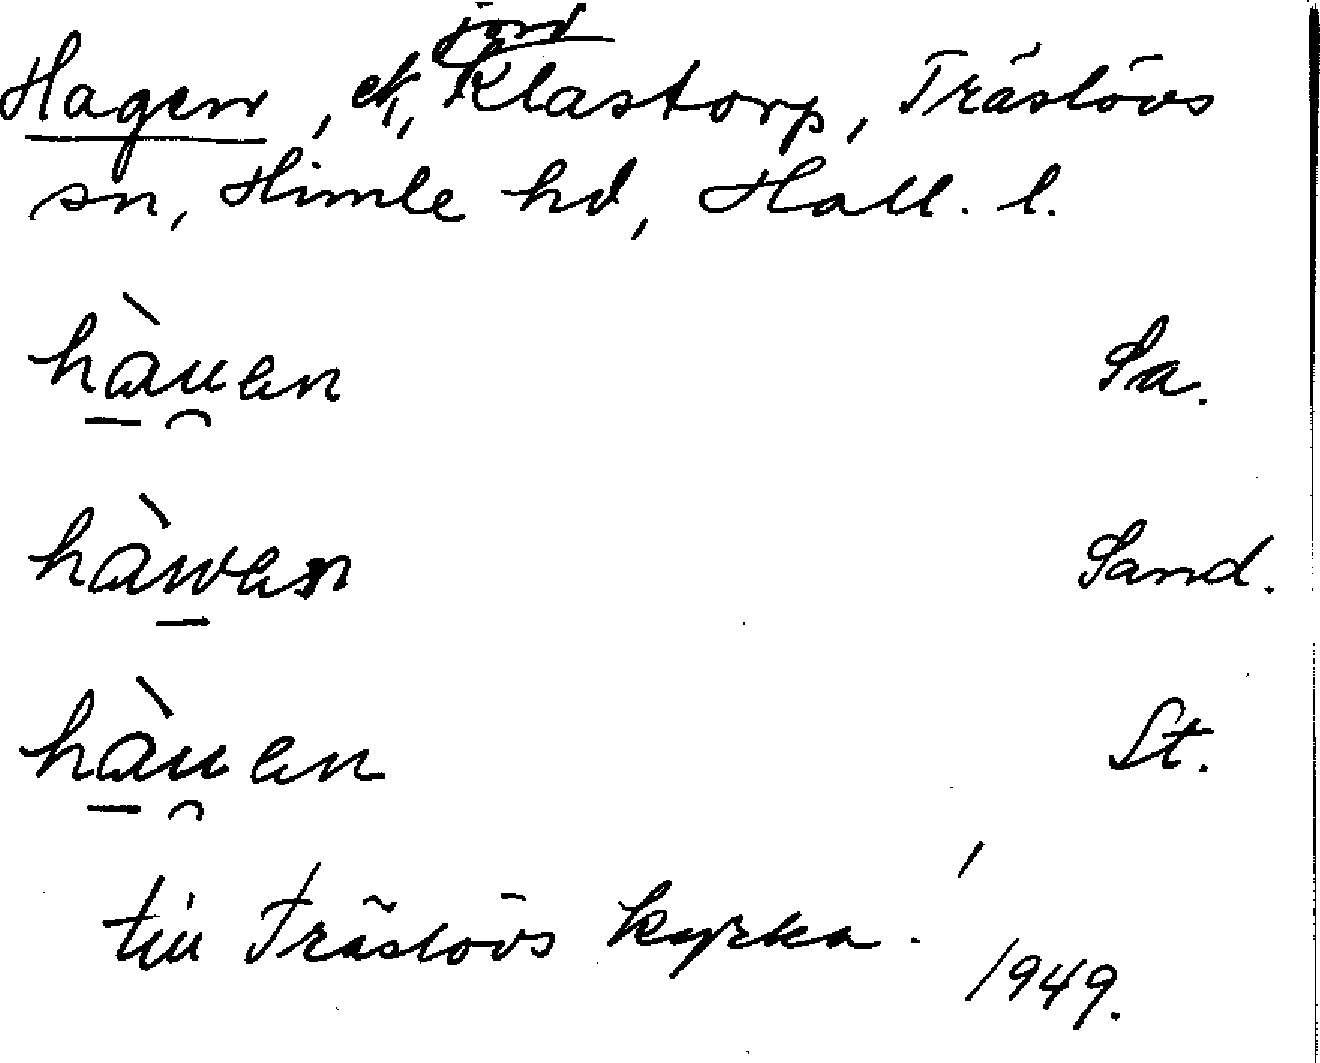 jord
Hagen, ek, Klastorp, Träslövs
sn, Himle hd, Hall. l.
hàu̯en Sa.
hàwen Sand.
hàu̯en St.
till Träslövs kyrka.
1949.